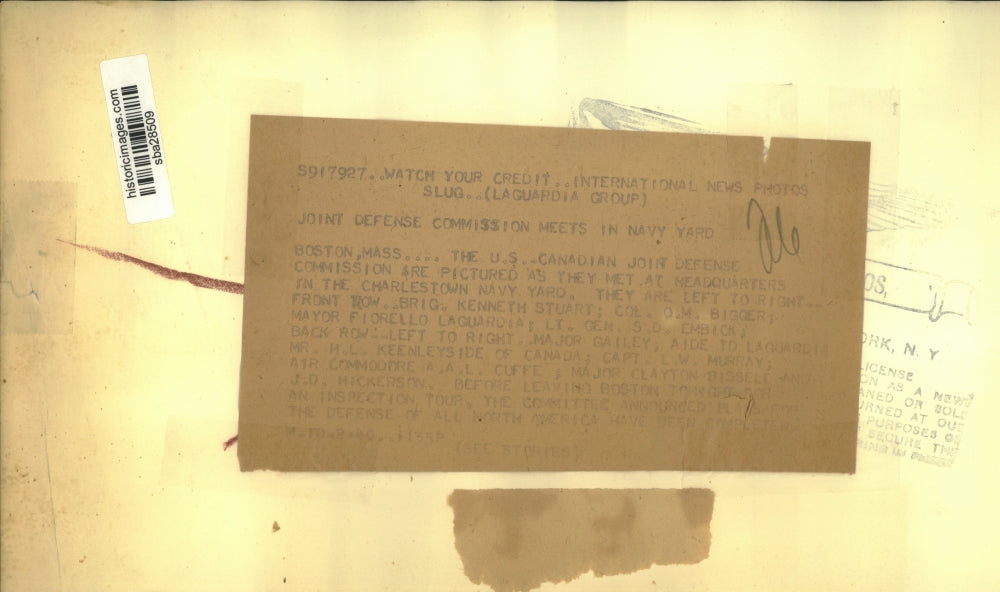 historicimages.com
sba28509
S917927..WATCH YOUR CREDIT..INTERNATIONAL NEWS PHOTOS
SLUG..(LAGUARDIA GROUP)
JOINT DEFENSE COMMISSION MEETS IN NAVY YARD
26
BOSTON,MASS.... THE U.S.-CANADIAN JOINT DEFENSE
COMMISSION ARE PICTURED AS THEY MET AT HEADQUARTERS
IN THE CHARLESTOWN NAVY YARD. THEY ARE LEFT TO RIGHT--
FRONT ROW--BRIG. KENNETH STUART; COL. O.M. BIGGER;
MAYOR FIORELLO LAGUARDIA; LT. GEN. S.D. EMBICK;
BACK ROW--LEFT TO RIGHT--MAJOR GAILEY, AIDE TO LAGUARDIA
MR. H.L. KEENLEYSIDE OF CANADA; CAPT. L.W. MURRAY;
AIR COMMODORE A.A.L. CUFFE ; MAJOR CLAYTON BISSELL AND
J.D. HICKERSON. BEFORE LEAVING BOSTON TONIGHT FOR
AN INSPECTION TOUR, THE COMMITTEE ANNOUNCED PLANS FOR
THE DEFENSE OF ALL NORTH AMERICA HAVE BEEN COMPLETED.
(SEE STORIES)
OS,
ORK, N. Y
LICENSE
ON AS A NEWS
ANED OR SOLD
URNED AT OUR
PURPOSES OR
SECURE THE